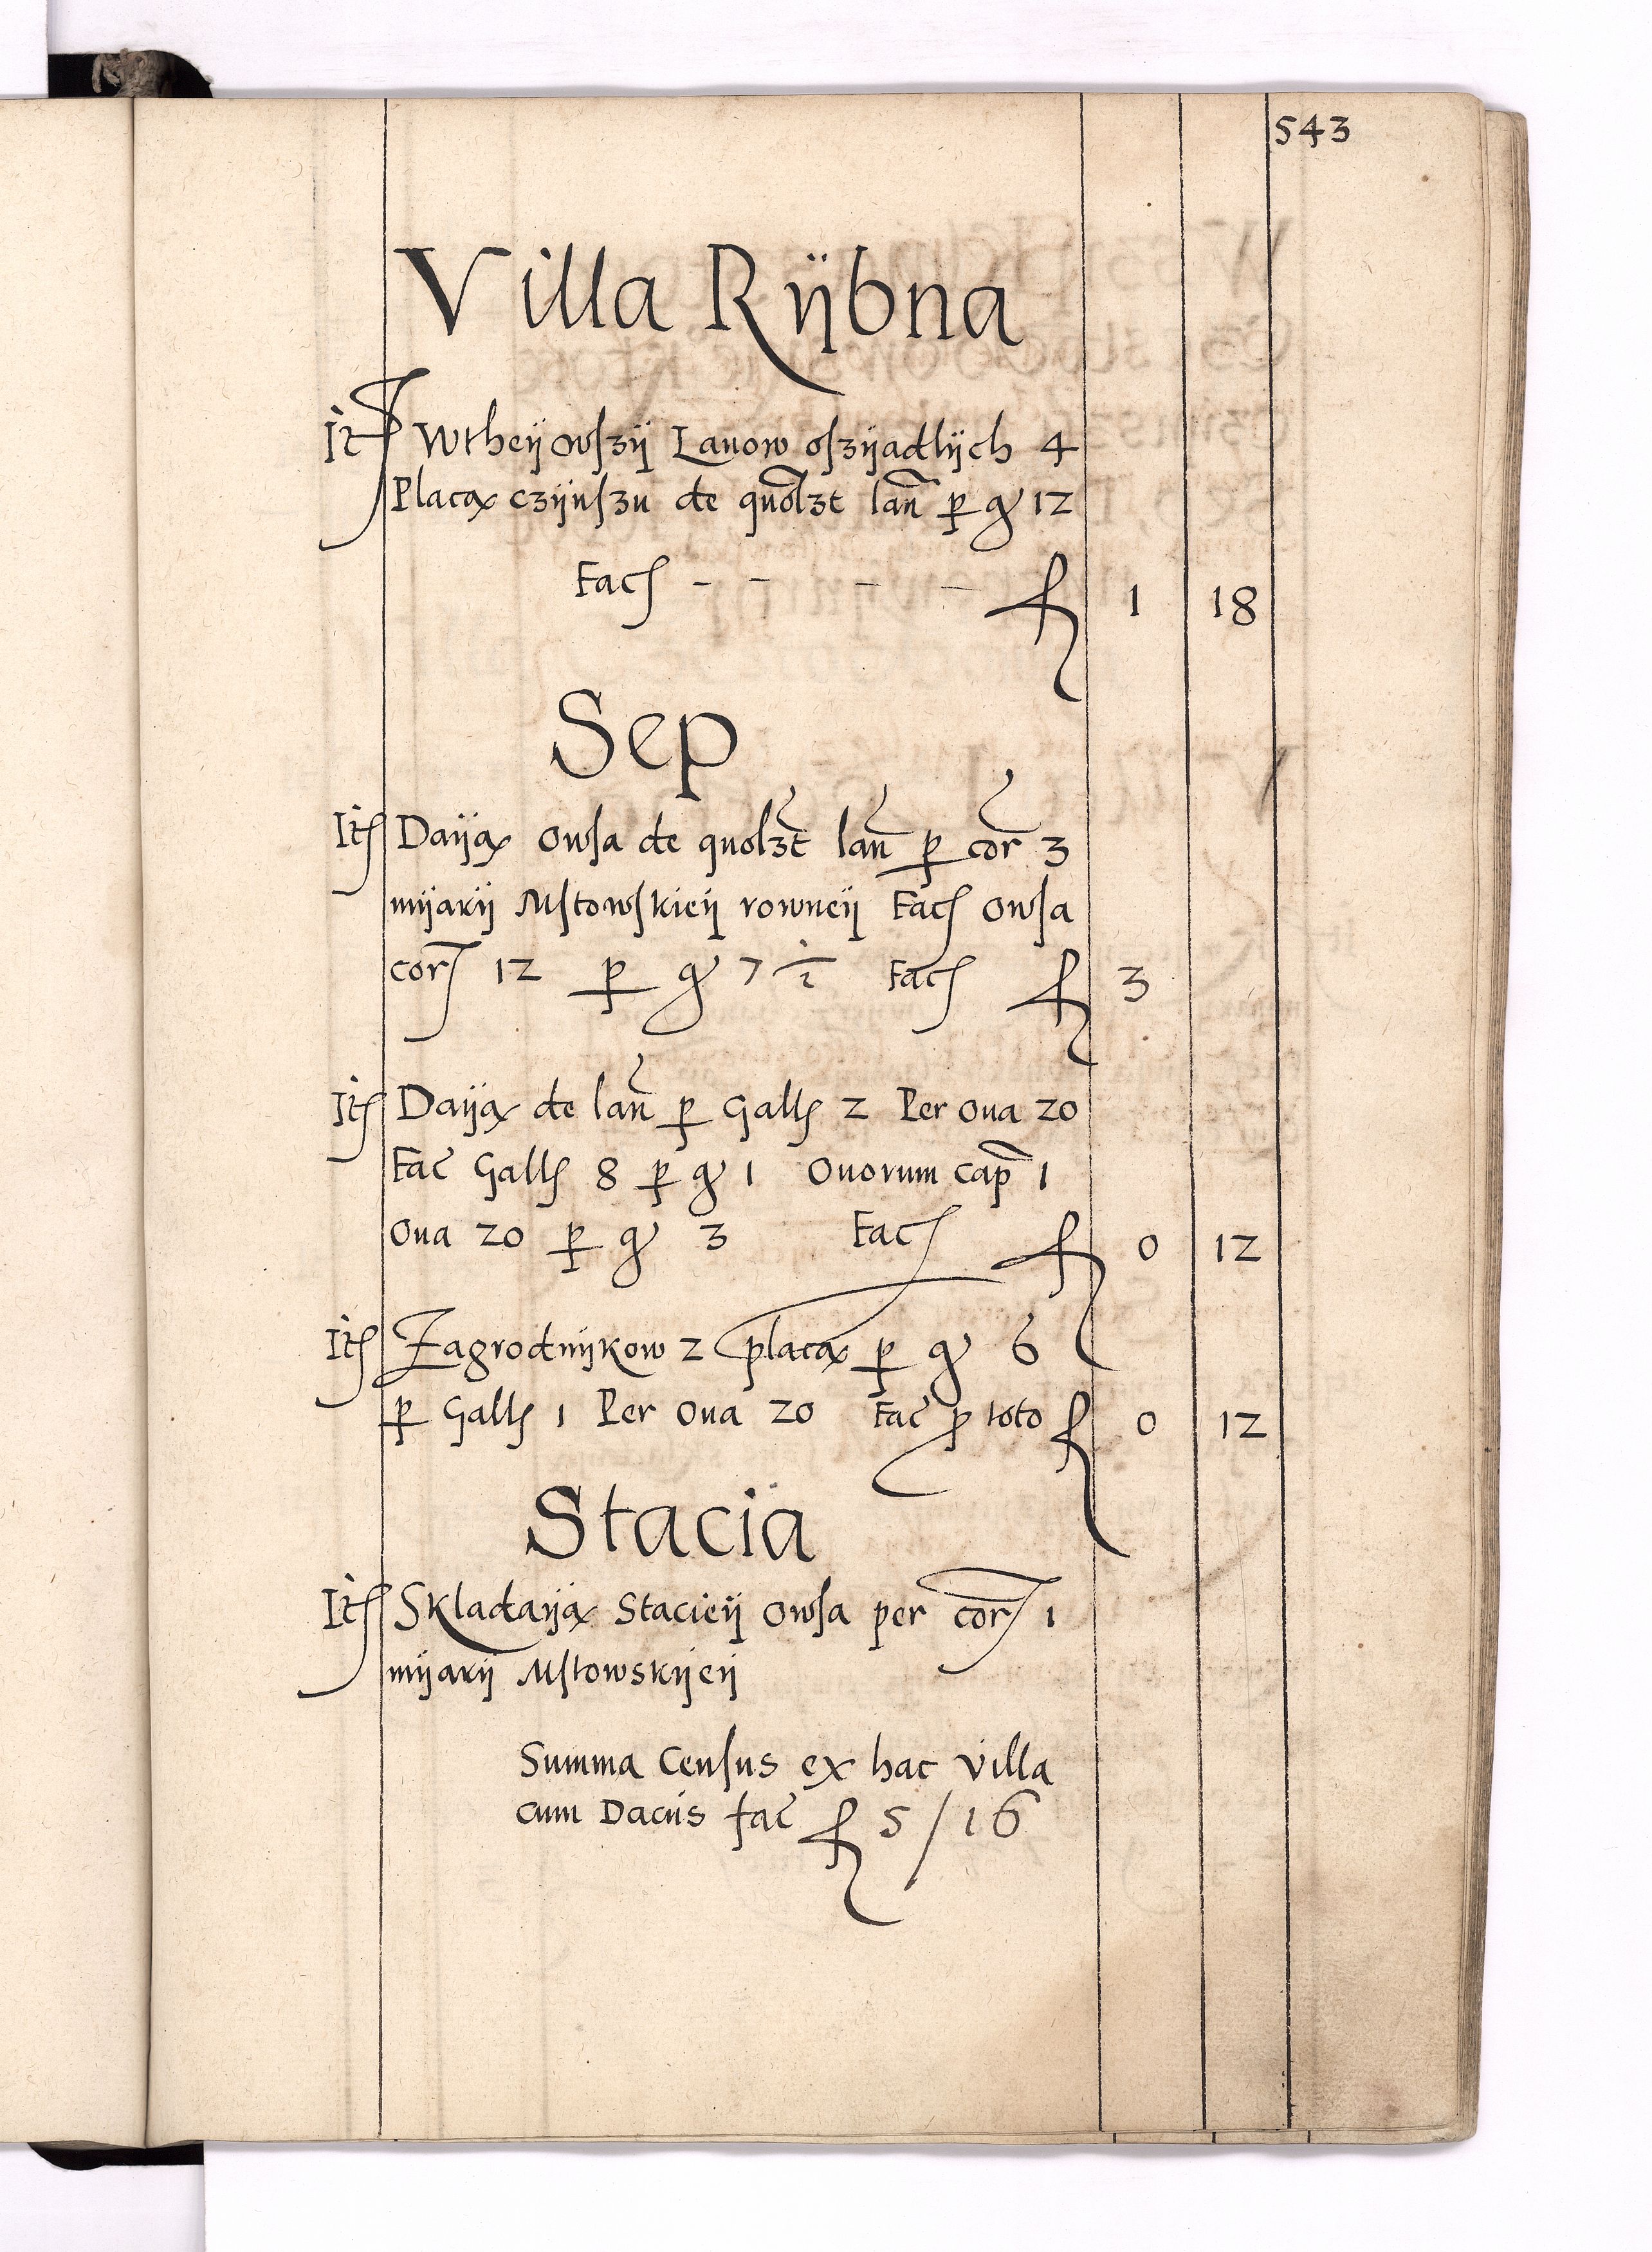 543
Villa Rÿbna
It Wtheÿ owſzÿ Lanow oſzÿadlÿch 4
Placą czÿnſzu de quolzt lan̄ ꝑ gꝛ 12
Fac — — — — f 1 18
Sep
It Daÿą owſa de quolzt lan̄ ꝑ cor 3
mÿarÿ Mſtowſkieÿ rowneÿ Fac Owſa
cor 12 ꝑ gꝛ 7 ½ Fac f 3
It Daÿą de lan̄ ꝑ Gall 2 Per oua 20
Fac̄ Gall 8 ꝑ gꝛ 1 Ouorum cap̄ 1
Oua 20 ꝑ gꝛ 3 Fac f 0 12
It Zagrodnÿkow 2 placą ꝑ gꝛ 6
ꝑ Gall 1 Per Oua 20 Fac̄ ꝓ toto f 0 12
Stacia
It Skladaÿą Stacieÿ owſa per cor 1
mÿarÿ Mſtowskÿeÿ
Summa Cenſus ex hac villa
cum Daciis fac̄ f 5/16